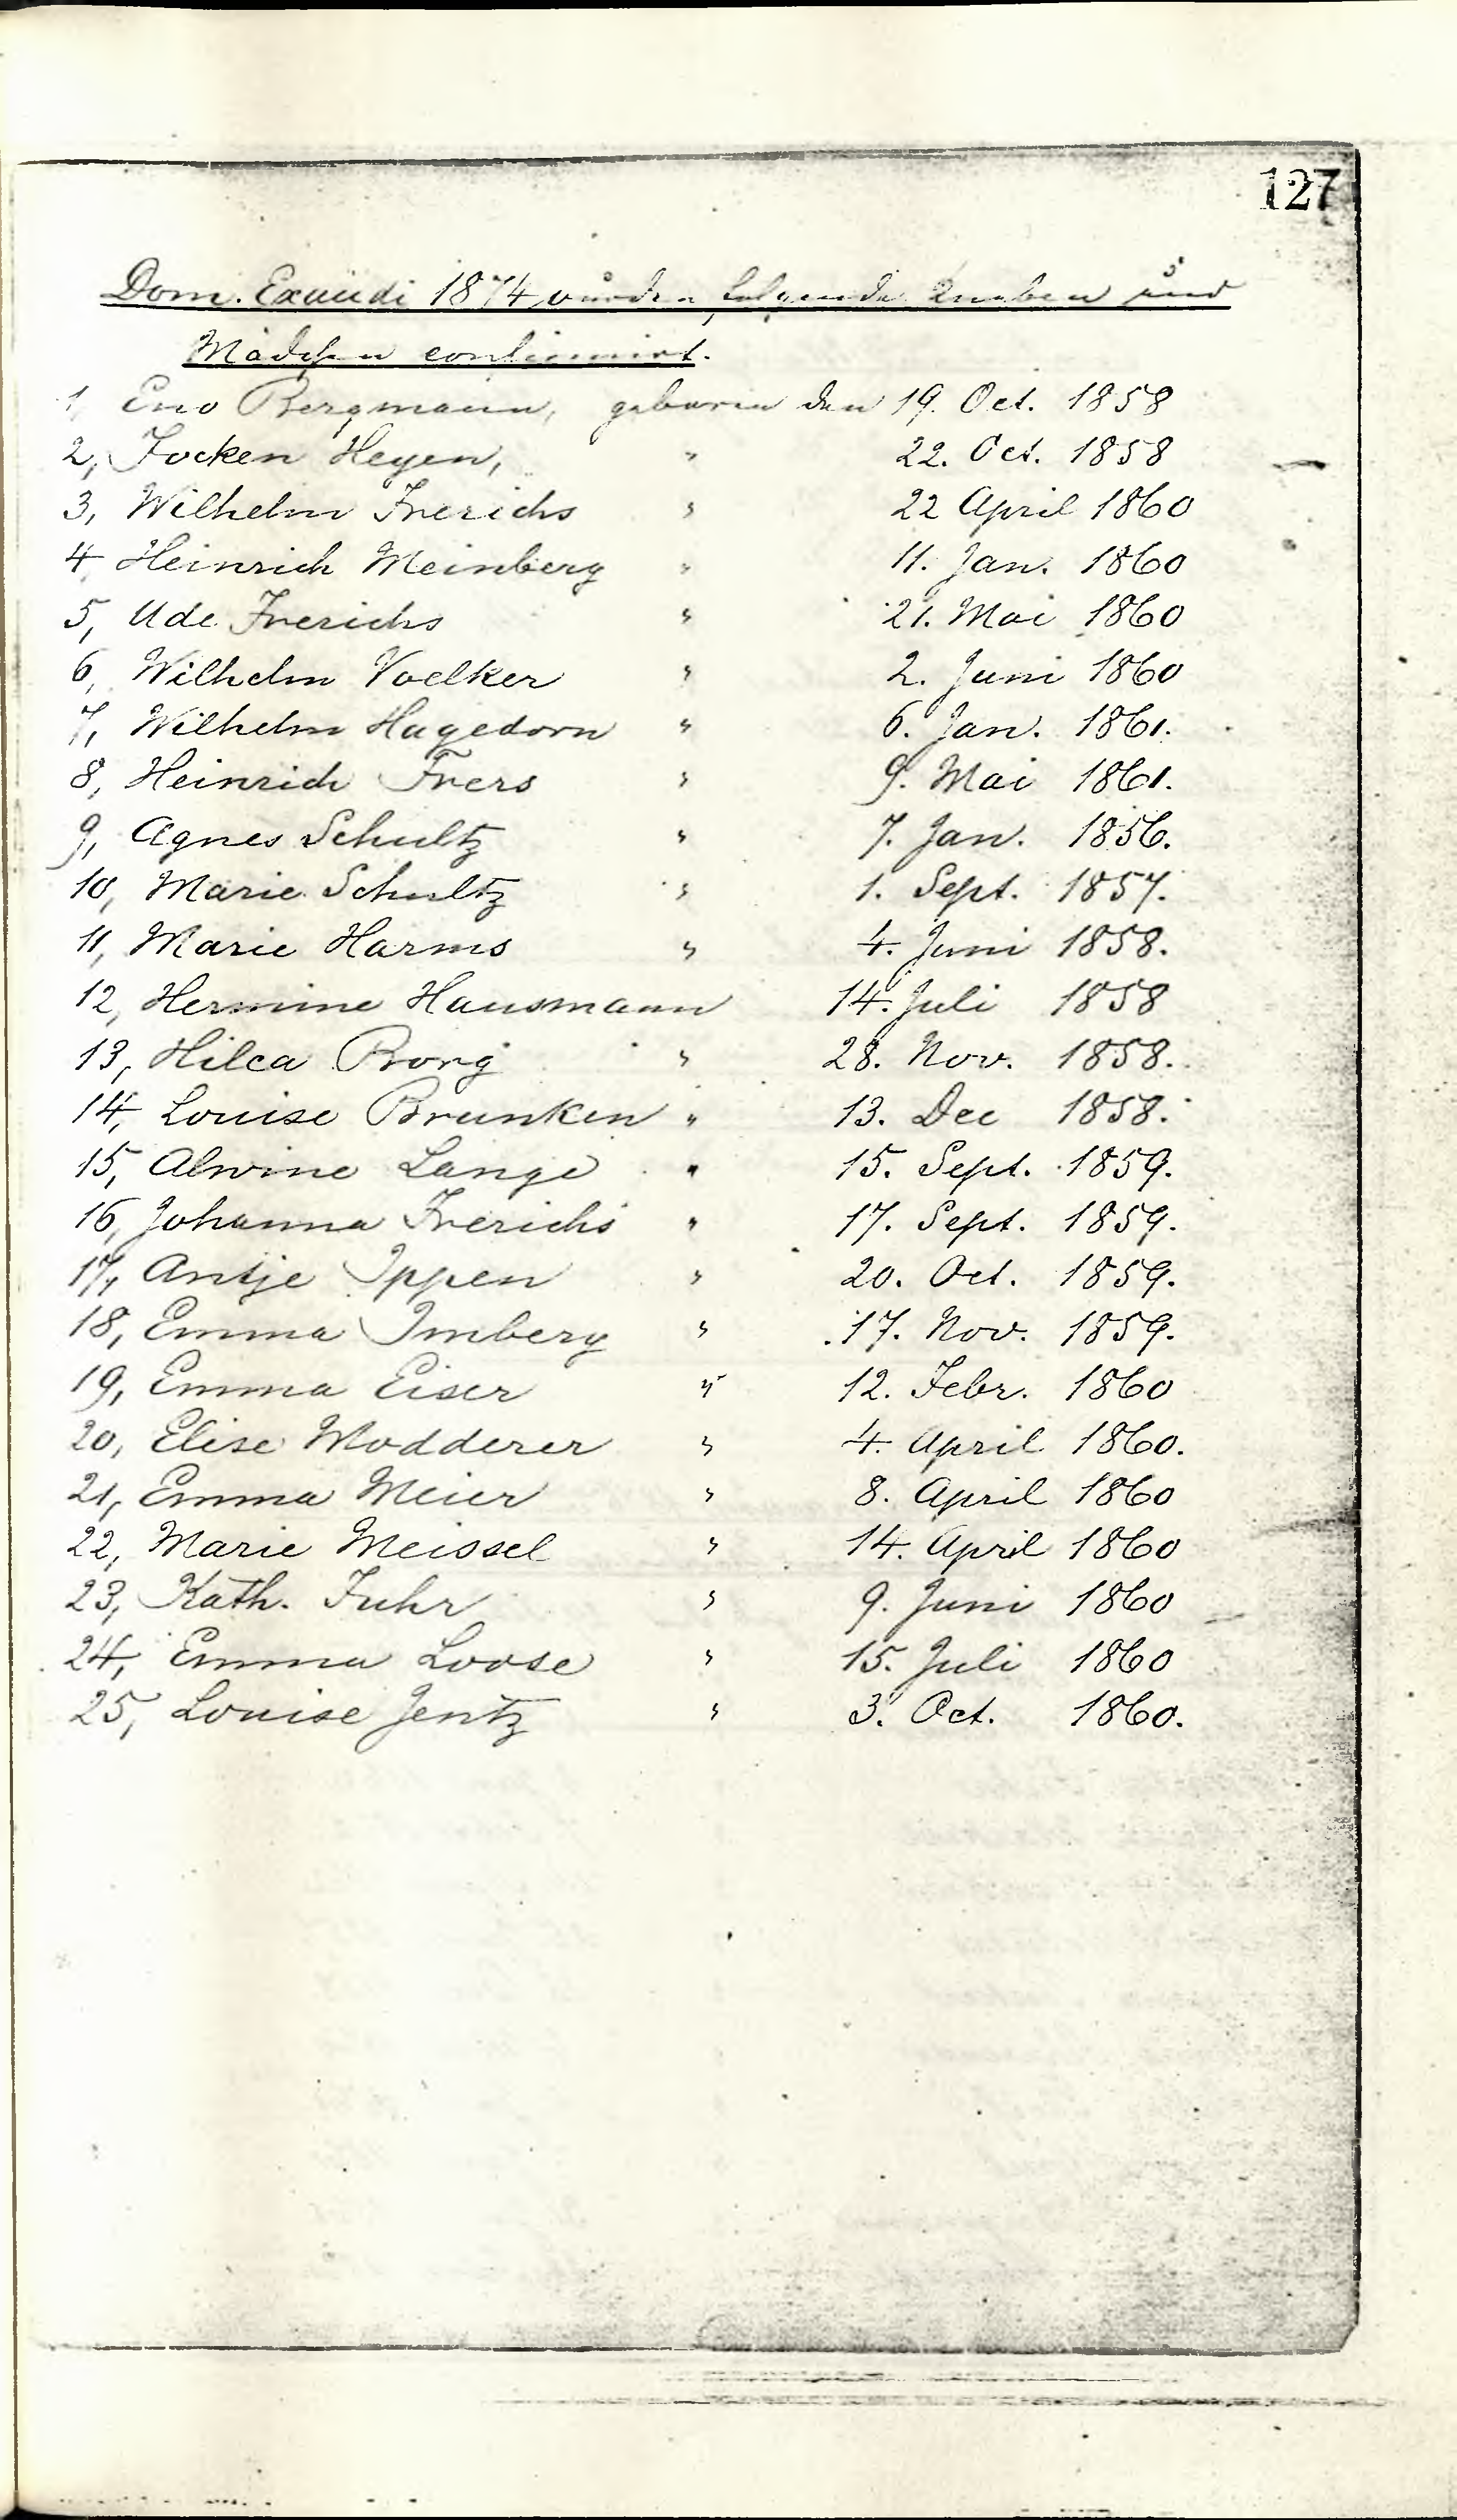 127
Dom. Exaudi 1874 wurden folgende Knaben und
Mädchen confirmirt.
1, Eno Bergmann, geboren den 19. Oct. 1858
2, Focken Heyen, " 22. Oct. 1858
3, Wilhelm Frerichs " 22 April 1860
4, Heinrich Meinberg " 11. Jan. 1860
5, Ude Frerichs " 21. Mai 1860
6, Wilhelm Voelker " 2. Juni 1860
7, Wilhelm Hagedorn " 6. Jan. 1861.
8, Heinrich Frers " 9. Mai 1861.
9, Agnes Schultz " 7. Jan. 1856.
10, Marie Schultz " 1. Sept. 1857.
11, Marie Harms " 4. Juni 1858.
12, Hermine Hausmann 14. Juli 1858
13, Hilca Borg " 28. Nov. 1858.
14, Louise Brunken " 13. Dec 1858.
15, Alwine Lange " 15. Sept. 1859.
16, Johanna Frerichs " 17. Sept. 1859.
17, Antje Ippen " 20. Oct. 1859.
18, Emma Imberg " 17. Nov. 1859.
19, Emma Eiser " 12. Febr. 1860
20, Elise Modderer " 4. April 1860.
21, Emma Meier " 8. April 1860
22, Marie Meissel " 14. April 1860
23, Kath. Fuhr " 9. Juni 1860
24, Emma Loose " 15. Juli 1860
25, Louise Jentz " 3. Oct. 1860.